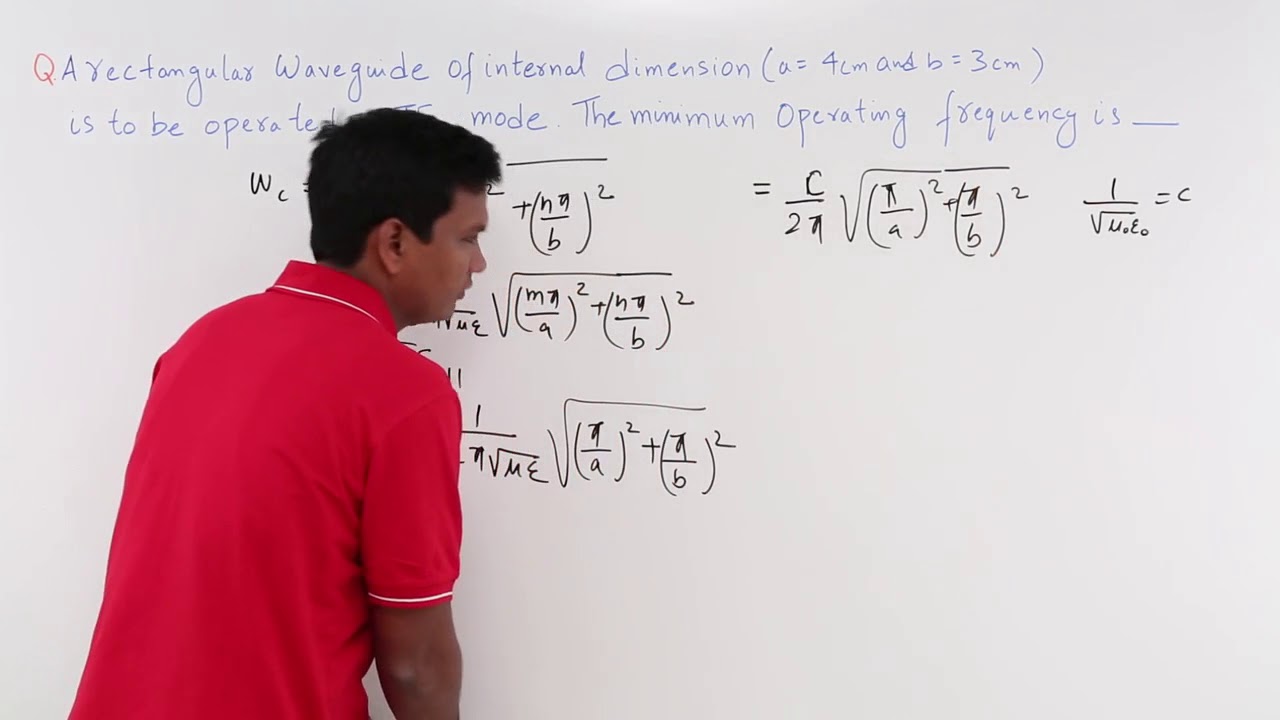 Q A rectangular Waveguide of internal dimension (a = 4cm and b = 3cm)
is to be operated mode. The minimum Operating frequency is __
ω_c = 2 +(nπ/b)^2
√με √((mπ/a)^2+(nπ/b)^2
11
1/π√με √((π/a)^2+(π/b)^2
= C/2π √((π/a)^2+(π/b)^2
1/√μ₀ε₀ = c